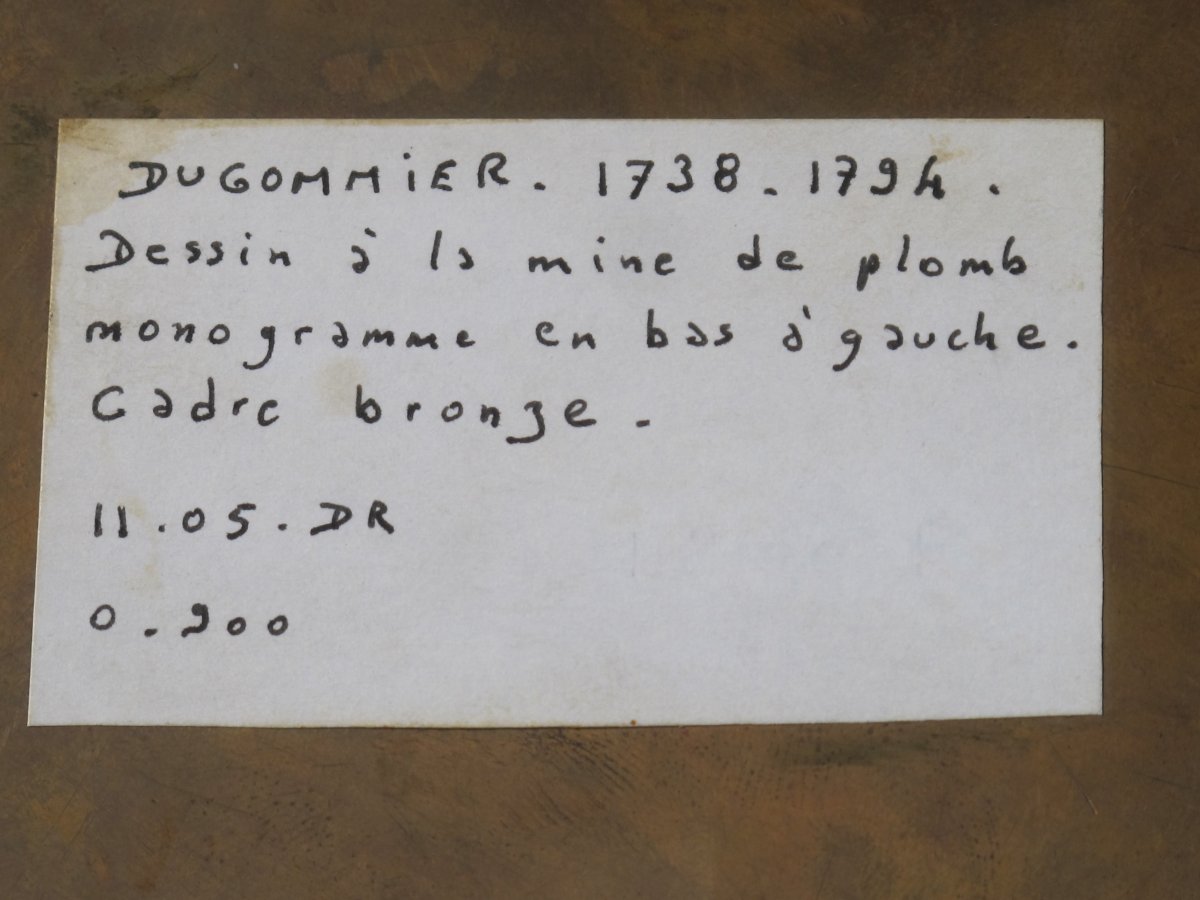 DUGOMMiER. 1738. 1794.
Dessin à la mine de plomb
monogramme en bas à gauche.
Cadre bronze.
11.05.DR
0.900